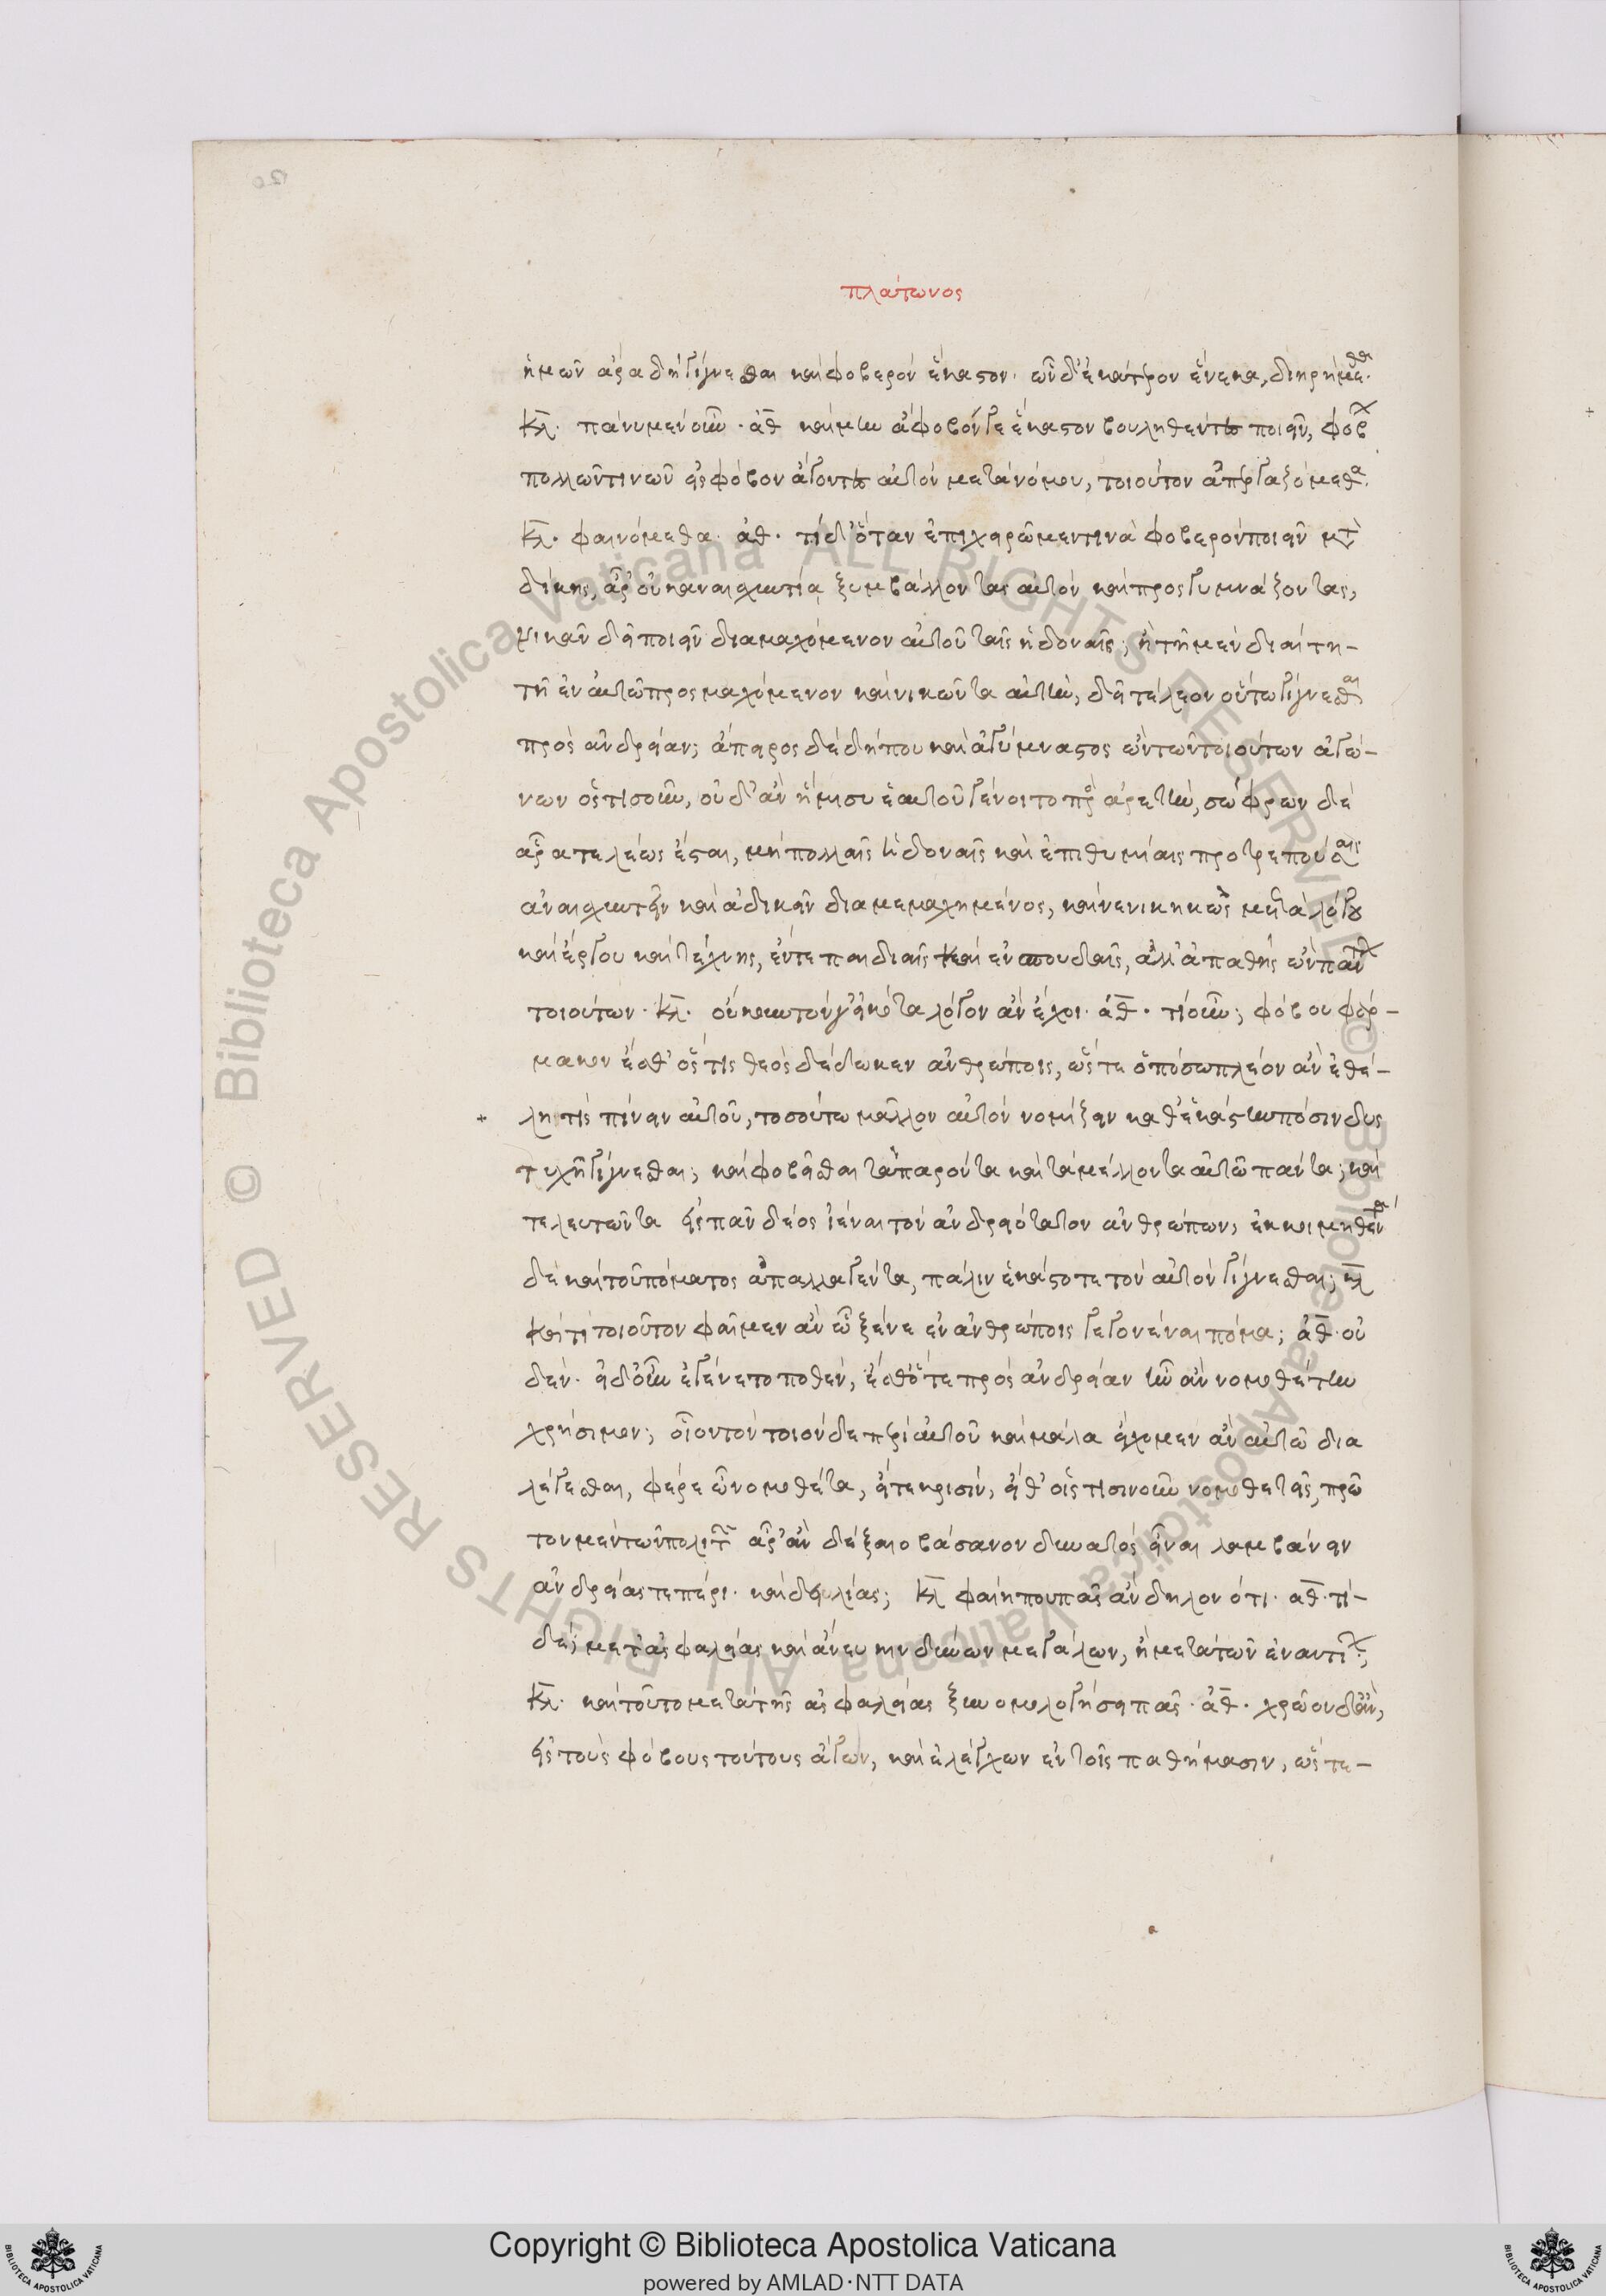 πλάτωνος
ἡμῶν ἆρα δὴ γίγνεσθαι καὶ φοβερὸν ἕκαστον· ὧν δ' ἑκάτερον ἕνεκα, διῃρήμεθα.
Κλ. πάνυ μὲν οὖν· ἀθ καὶ μὴν ἄφοβόν γε ἕκαστον βουληθέντες ποιεῖν, φόβων
πολλῶν τινῶν εἰς φόβον ἄγοντες αὐτὸν μετὰ νόμου, τοιοῦτον ἀπεργαζόμεθα.
Κλ. φαινόμεθα. ἀθ. τί δ' ὅταν ἐπιχειρῶμεν τινὰ φοβερὸν ποιεῖν μετὰ
δίκης, ἆρ' οὐκ ἀναισχυντίᾳ ξυμβάλλοντας αὐτὸν καὶ προσγυμνάζοντας,
νικᾶν δεῖ ποιεῖν διαμαχόμενον αὐτοῦ ταῖς ἡδοναῖς; ἢ τῇ μὲν δειλίᾳ τῇ
τῇ ἐν αὐτῷ προσμαχόμενον καὶ νικῶντα αὐτὴν, δεῖ τέλεον οὕτω γίγνεσθαι
πρὸς ἀνδρείαν; ἄπειρος δὲ δήπου καὶ ἀγύμναστος ὢν τῶν τοιούτων ἀγώ-
νων ὅστισοῦν, οὐδ' ἂν ἥμισυ ἑαυτοῦ γένοιτο πρὸς ἀρετὴν, σώφρων δὲ
ἆρα τελέως ἔσται, μὴ πολλαῖς ἡδοναῖς καὶ ἐπιθυμίαις προτρεπούσαις
ἀναισχυντεῖν καὶ ἀδικεῖν διαμεμαχημένος, καὶ νενικηκὼς μετὰ λόγου
καὶ ἔργου καὶ τέχνης, ἔν τε παιδιαῖς καὶ ἐν σπουδαῖς, ἀλλ' ἀπαθὴς ὢν πάντων
τοιούτων· Κλ. οὔκουν τόν γ' εἰκότα λόγον ἂν ἔχοι. ἀθ. τί οὖν; φόβου φάρ-
μακον ἔσθ' ὅστις θεὸς δέδωκεν ἀνθρώποις, ὥστε ὁπόσῳ πλέον ἂν ἐθέ-
λῃ τις πίνειν αὐτοῦ, τοσούτῳ μᾶλλον αὐτὸν νομίζειν καθ' ἑκάστην πόσιν δυς
τυχῆ γίγνεσθαι; καὶ φοβεῖσθαι τὰ παρόντα καὶ τὰ μέλλοντα αὐτῷ πάντα; καὶ
τελευτῶντα εἰς πᾶν δέος ἰέναι τὸν ἀνδρειότατον ἀνθρώπων, ἐκκοιμηθέντα
δὲ καὶ τοῦ πόματος ἀπαλλαγέντα, πάλιν ἑκάστοτε τὸν αὐτὸν γίγνεσθαι; κλ
καὶ τί τοιοῦτον φαῖμεν ἂν ὦ ξένε ἐν ἀνθρώποις γεγονέναι πόμα; ἀθ. οὐ
δέν. εἰ δ' οὖν ἐγένετο ποθὲν, ἔσθ' ὅτε πρὸς ἀνδρείαν ἦν ἂν νομοθέτῃ
χρήσιμον; οἷον τὸν τοιόνδε περὶ αὐτοῦ καὶ μάλα εἴχομεν ἂν αὐτῷ δια
λέγεσθαι, φέρε ὦ νομοθέτα, εἴτε κρησὶν, εἴθ' οἷς τισινοῦν νομοθετεῖς, πρῶ
τον μὲν τῶν πολιτῶν ἆρ' ἂν δέξαιο βάσανον δυνατὸς εἶναι λαμβάνειν
ἀνδρείας τε πέρι. καὶ δειλίας; Κλ φαίη που πᾶς ἂν δηλονότι. ἀθ. τί-
δέ; μετ' ἀσφαλείας καὶ ἄνευ κινδύνων μεγάλων, ἢ μετὰ τῶν ἐναντίων;
Κλ. καὶ τοῦτο μετὰ τῆς ἀσφαλείας ξυνομολογήσει πᾶς. ἀθ. χρῷο δ' ἂν,
εἰς τοὺς φόβους τούτους ἄγων, καὶ ἐλέγχων ἐν τοῖς παθήμασιν, ὥστε-